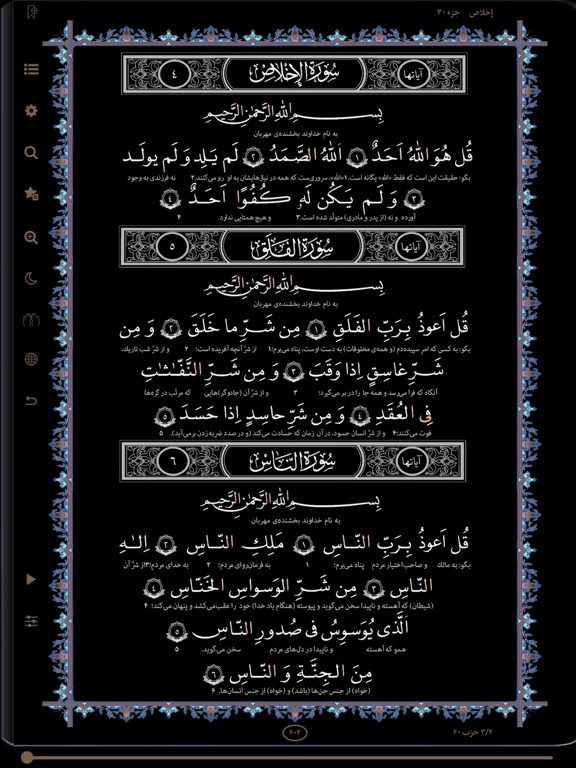 إخلاص جزء ۳۰
آیاتها سُورَةُ الإِخلاص ٤
بِسمِ اللهِ الرَّحمٰنِ الرَّحیمِ
به نام خداوند بخشنده‌ی مهربان
قُل هُوَ اللهُ اَحَدٌ ۱ اَللهُ الصَّمَدُ ۲ لَم یَلِد وَ لَم یولَد
بگو: حقیقت این است که فقط «الله» یگانه است.۱ «الله»، سروری‌ست که همه در نیازهایشان به او رو می‌کنند.۲ نه فرزندی به وجود
۳ وَ لَم یَکُن لَهو کُفُوًا اَحَدٌ ٤
آورده و نه (از پدر و مادری) متولّد شده است.۳ و هیچ همتایی ندارد. ۴
آیاتها سُورَةُ الفَلَق ٥
بِسمِ اللهِ الرَّحمٰنِ الرَّحیمِ
به نام خداوند بخشنده‌ی مهربان
قُل اَعوذُ بِرَبِّ الفَلَقِ ۱ مِن شَرِّ ما خَلَقَ ۲ وَ مِن
بگو: به کسی که امر سپیده‌دم (و همه‌ی مخلوقات) به دست اوست، پناه می‌برم؛۱ از شرّ آنچه آفریده است؛ ۲ و از شرّ شب تاریک،
شَرِّ غاسِقٍ اِذا وَقَبَ ۳ وَ مِن شَرِّ النَّفّٰثٰتِ
آنگاه که فرا می‌رسد و همه جا را در بر می‌گیرد؛ ۳ و از شرّ آن (جادوگر)هایی که مرتّب در گره‌ها
فِی العُقَدِ ٤ وَ مِن شَرِّ حاسِدٍ اِذا حَسَدَ ٥
فوت می‌کنند؛۴ و از شرّ انسان حسود، در آن زمان که حسادت می‌کند (و در صدد ضربه زدن برمی‌آید). ۵
آیاتها سُورَةُ النّاس ٦
بِسمِ اللهِ الرَّحمٰنِ الرَّحیمِ
به نام خداوند بخشنده‌ی مهربان
قُل اَعوذُ بِرَبِّ النّاسِ ۱ مَلِکِ النّاسِ ۲ اِلٰهِ
بگو: به مالک و صاحب‌اختیار مردم پناه می‌برم؛ ۱ به فرمان‌روای مردم؛ ۲ به خدای مردم؛۳ از شرّ آن
النّاسِ ۳ مِن شَرِّ الوَسواسِ الخَنّاسِ ٤
(شیطان) که آهسته و ناپیدا سخن می‌گوید و پیوسته (هنگام یاد خدا) خود را عقب می‌کشد و پنهان می‌کند؛ ۴
اَلَّذی یُوَسوِسُ فی صُدورِ النّاسِ ٥
همو که آهسته و ناپیدا در دل‌های مردم سخن می‌گوید. ۵
مِنَ الجِنَّةِ وَ النّاسِ ٦
(خواه) از جنس جن‌ها (باشد) و (خواه) از جنس انسان‌ها. ۶
۶۰۴
۳/۴ حزب ۶۰